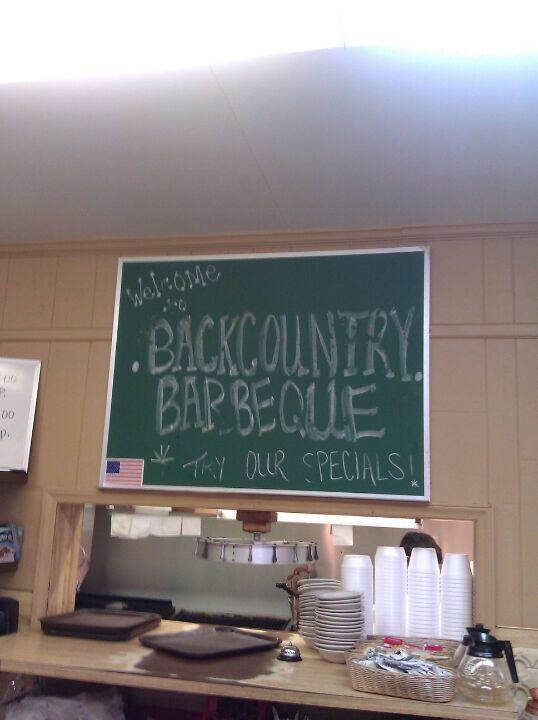 Welcome
to
BACKCOUNTRY
BARBEQUE
TRY OUR SPECIALS!